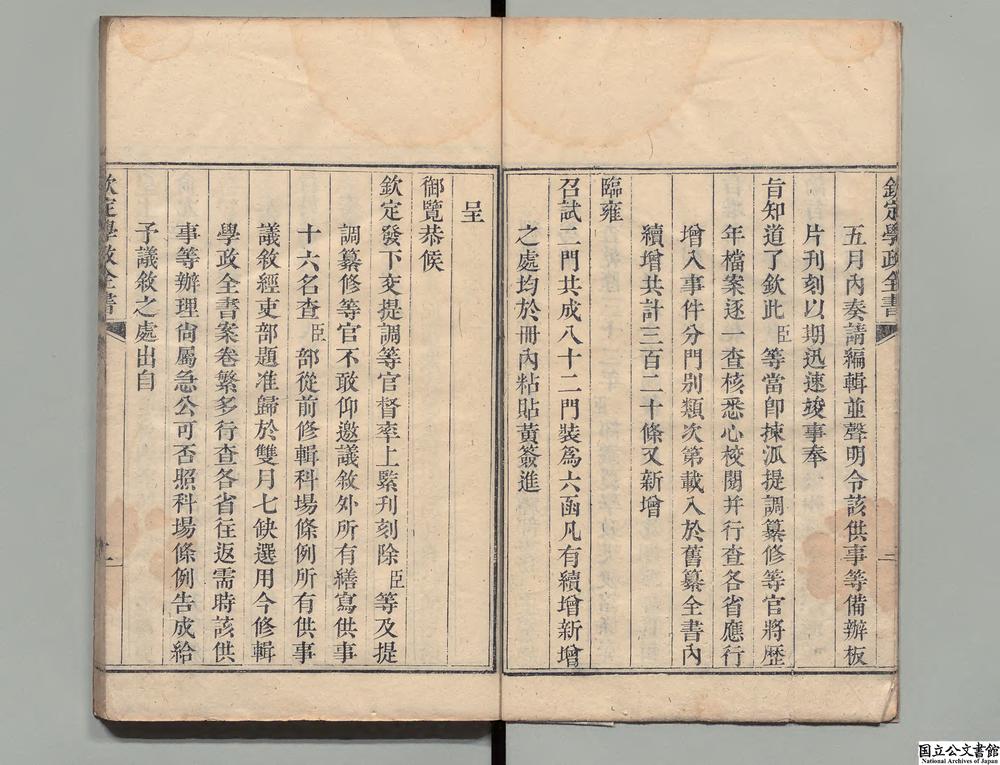 欽定學政全書
二
五月內奏請編輯並聲明令該供事等備辦板
片刊刻以期迅速竣事奉
旨知道了欽此臣等當卽揀派提調纂修等官將歷
年檔案逐一查核悉心校閱并行查各省應行
增入事件分門別類次第載入於舊纂全書內
續增共計三百二十條又新增
臨雍
召試二門共成八十二門裝爲六函凡有續增新增
之處均於冊內粘貼黃簽進
呈
御覽恭候
欽定發下交提調等官督率上緊刊刻除臣等及提
調纂修等官不敢仰邀議敘外所有繕寫供事
十六名查臣部從前修輯科場條例所有供事
議敘經吏部題准歸於雙月七缺選用今修輯
學政全書案卷繁多行查各省往返需時該供
事等辦理尙屬急公可否照科場條例告成給
予議敘之處出自
欽定學政全書
国立公文書館
National Archives of Japan